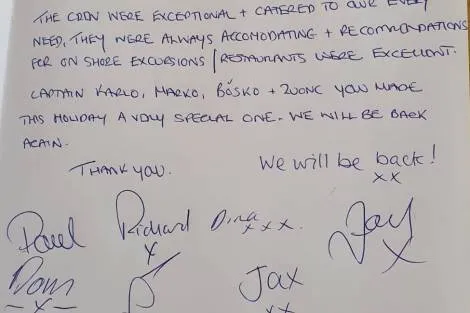 THE CREW WERE EXCEPTIONAL + CATERED TO OUR EVERY
NEED, THEY WERE ALWAYS ACCOMODATING + RECOMMENDATIONS
FOR ON SHORE EXCURSIONS / RESTAURANTS WERE EXCELLENT.
CAPTAIN KARLO, MARKO, BOŠKO + ZVONC YOU MADE
THIS HOLIDAY A VERY SPECIAL ONE. WE WILL BE BACK
AGAIN.
THANK YOU.
We will be back!
xx
Paul
Richard
x
Dina
xxx.
Jay
X
Dom
-x-
Jax
xx